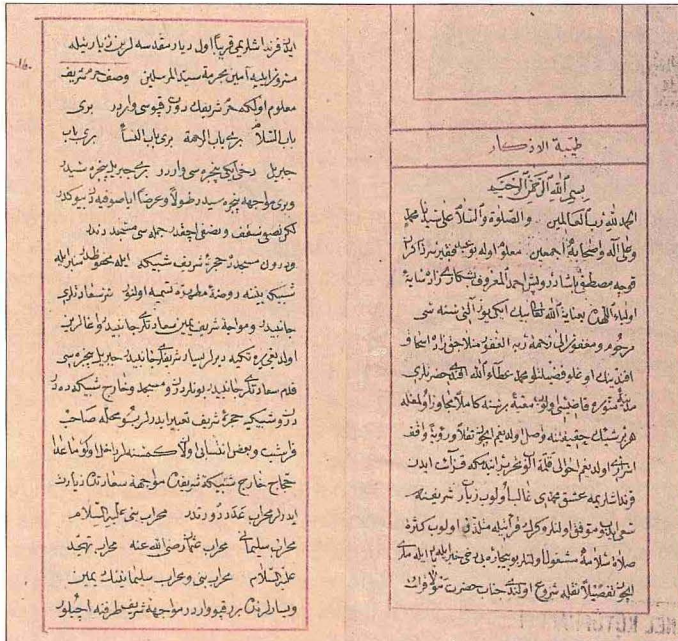 طيبة الاذكار
بسم الله الرحمن الرحيم
الحمد لله رب العالمين والصلوة والسلام على سيدنا محمد
وعلى آله واصحابه اجمعين معلوم اوله بو عبد فقير بر ذاكر
قوجه مصطفى پاشاده درويش احمد المعروف زاده سايۀ
اولياء اللهده بعناية الله تعالى بيك ايكى يوز آلتى سنه سى
مرحوم و مغفور الى رحمة ربه الغفور منلاجق زاده اسحاق
افندينك اوغلو فضيلتلو محمد عطاء الله افندى حضرتلرى
مدينۀ منوره قاضيسى اولوب برسنه كاملا مجاور اولمغله
هر بر شيئك حقيقتنه واصل اولديغم ايچون نقلا ورؤية واقف
اسرارى اولديغم احوالى تحرير ايتدمكه قرائت ايدن
قرنداشلريمه عشق محمدى غالب اولوب زيارت شريفنه
سعى ايدوب موفق اولنلره كرك قرائتيله متلذذ اولوب كثرة
صلاة سلامه مشغول اولنلر بو بيچاره يى دخى خير ايله ياد
ايچون تفصيلا نقله شروع اولندى جناب حضرت مولا قرائت
ايدن قرنداشلريمى قريبا اول ديار مقدسه لرين زيارتيله
مسرور ايليه آمين بحرمة سيد المرسلين وصف حرم شريف
معلوم اولكه حرم شريفك درت قپوسى واردر برى
باب السلام برى باب الرحمة برى باب النسا برى باب
جبريل دخى ايكى پنجره سى واردر برى جبريل پنجره سيدر
وبرى مواجهه پنجره سيدر طولا وعرضا اياصوفيه دن بيوكدر
لكن نصفى سقف ونصفى آچقدر جمله سى مسجددندر
ودرون مسجدده حجرۀ شريف شبيكه ايله محفوظدر
شبيكه يه روضۀ مطهره تسميه اولنور سعادتلرى
جانبيدر ومواجهۀ شريف يمين سعادتلرى جانبيدر واغالرك
اولديغى يره تكيه ديرلر يسار شريفلرى جانبيدر جبريل پنجره سى
قدم سعادتلرى جانبيدر بونلر درون مسجد وخارج شبيكه ده در
درون شبيكه حجرۀ شريف تعبير ايدرلر بو محله صاحب
فراشت وبعض انسانى كمسنه لر داخل اولور ماعدا
حجاج خارج شبيكۀ شريفدن مواجهۀ سعادتدن زيارت
ايدرلر محراب عدد دورتدر محراب نبى عليه السلام
محراب سليمانى محراب عثمان رضى الله عنه محراب تهجد
عليه السلام محراب نبى ومحراب سليمانينك يمين
ويسارلرنده برر قپو واردر مواجهۀ شريف طرفنه آچيلور